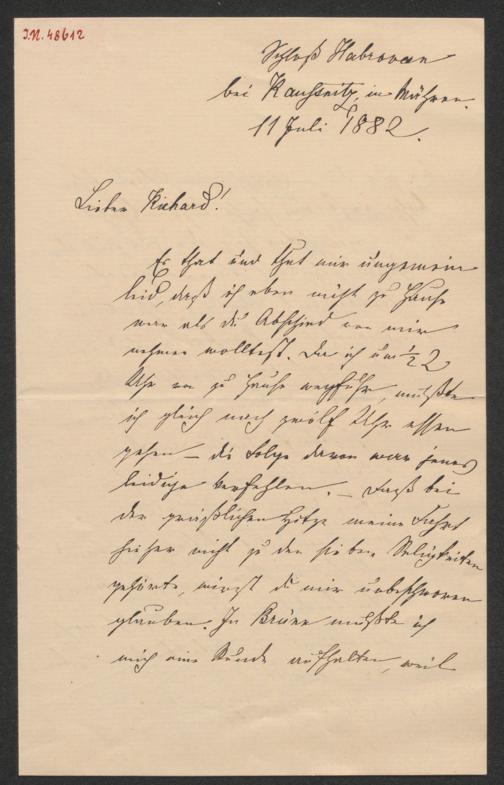 J.N. 48612
Schloß Habrovan
bei Rausnitz, in Mähren.
11 Juli 1882.
Lieber Richard!
Es that und thut mir ungemein
leid, daß ich eben nicht zu Hause
war als du Abschied von mir
nehmen wolltest. Da ich um ½ 2
Uhr von zu Hause wegfuhr, mußte
ich gleich nach zwölf Uhr essen
gehen – die Folge davon war jenes
leidige Verfehlen. – Daß bei
der gräßlichen Hitze meine Fahrt
hieher nicht zu den sieben Seligkeiten
gehörte, wirst du mir unbeschworen
glauben. In Brünn mußte ich
mich eine Stunde aufhalten, weil